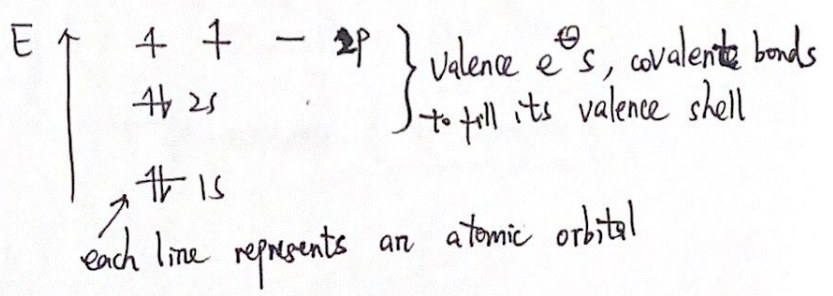 E 2p
valence e⊖s, covalent bonds
2s
to fill its valence shell
1s
each line represents an atomic orbital